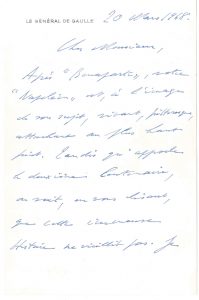 LE GÉNÉRAL DE GAULLE
20 Mars 1968.
Cher Monsieur,
Après "Bonaparte", votre
"Napoléon" est, à l'image
de son sujet, vivant, pittoresque,
attachant au plus haut
point. Tandis qu'approche
le deuxième Centenaire,
on voit, en vous lisant,
que cette
Histoire ne vieillit pas. Je